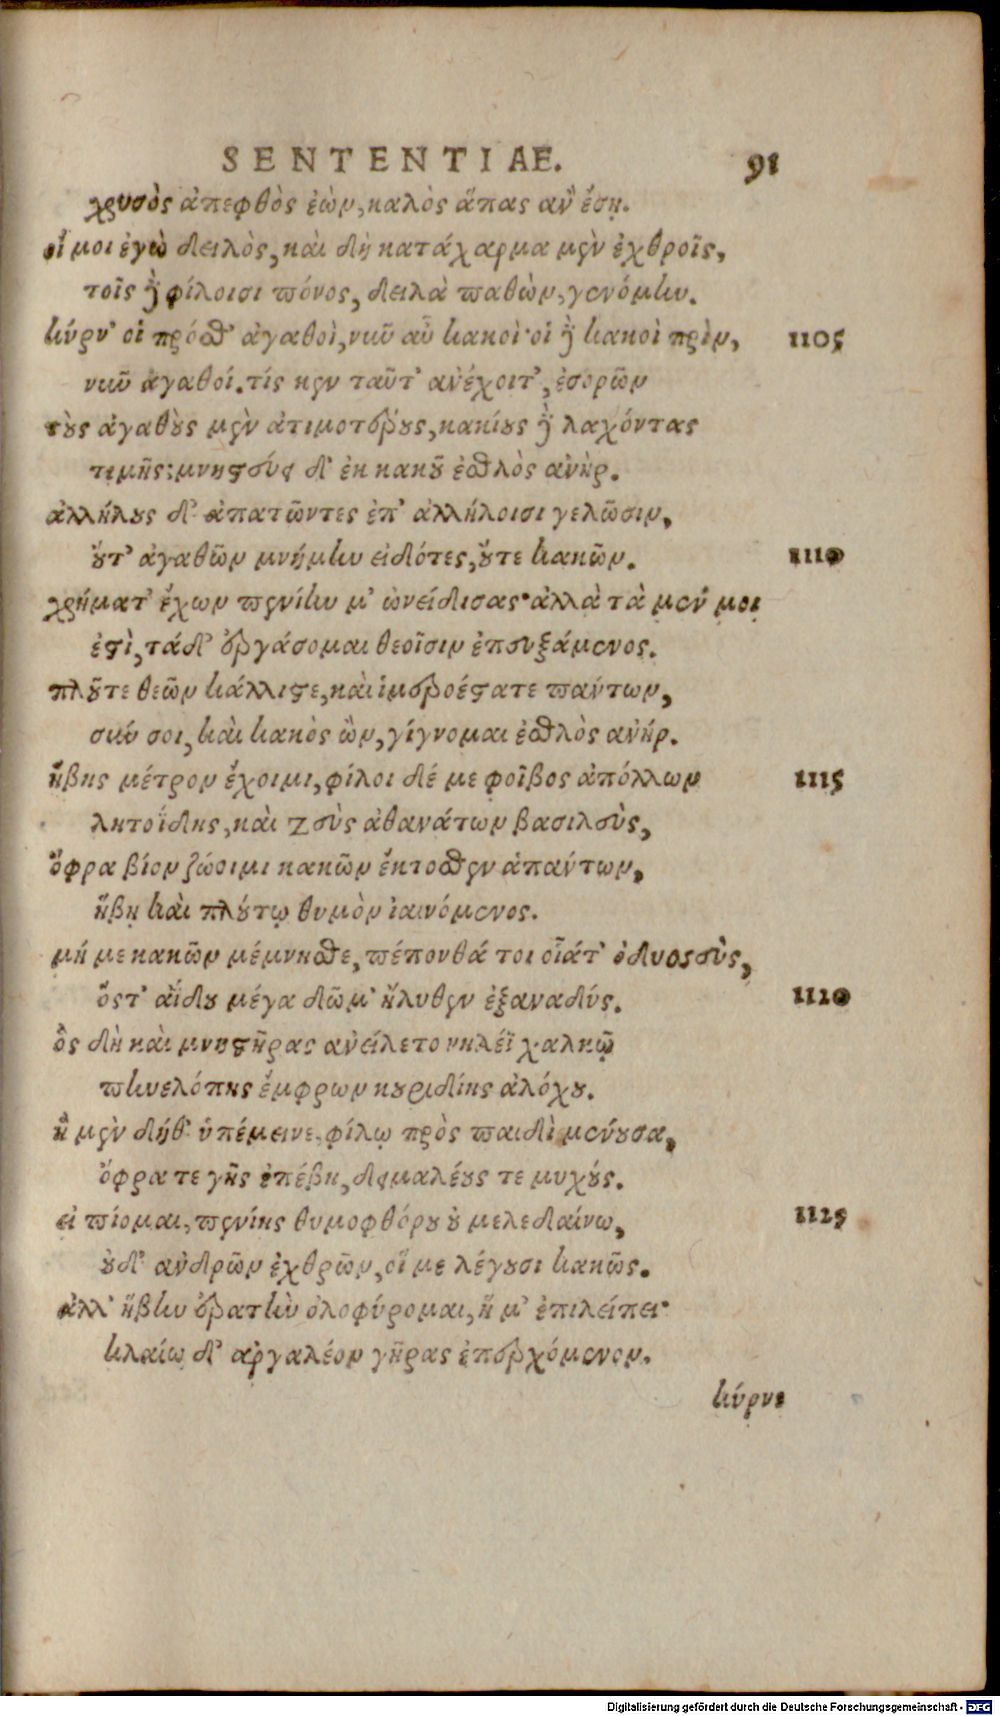 SENTENTIAE. 91
χρυσὸς ἀπεφθὸς ἐὼν, καλὸς ἅπας ἂν ἔσῃ.
οἴ μοι ἐγὼ δειλὸς, καὶ δὴ κατάχαρμα μὲν ἐχθροῖς,
τοῖς δὲ φίλοισι πόνος, δειλὰ παθὼν, γενόμην.
κύρν' οἱ πρόσθ' ἀγαθοὶ, νῦν αὖ κακοὶ· οἱ δὲ κακοὶ πρὶν, 1105
νῦν ἀγαθοί. τίς κεν ταῦτ' ἀνέχοιτ', ἐσορῶν
τοὺς ἀγαθοὺς μὲν ἀτιμοτέρους, κακίους δὲ λαχόντας
τιμῆς; μνηστεύει δ' ἐκ κακοῦ ἐσθλὸς ἀνὴρ.
ἀλλήλους δ' ἀπατῶντες ἐπ' ἀλλήλοισι γελῶσιν,
οὔτ' ἀγαθῶν μνήμην εἰδότες, οὔτε κακῶν. 1110
χρήματ' ἔχων πενίην μ' ὠνείδισας· ἀλλὰ τὰ μέν μοι
ἐστὶ, τάδ' ἐργάσομαι θεοῖσιν ἐπευξάμενος.
πλοῦτε θεῶν κάλλιστε, καὶ ἱμεροέστατε πάντων,
σύν σοι, καὶ κακὸς ὢν, γίγνομαι ἐσθλὸς ἀνήρ.
ἥβης μέτρον ἔχοιμι, φίλοι δέ με φοῖβος ἀπόλλων 1115
λητοΐδης, καὶ ζεὺς ἀθανάτων βασιλεὺς,
ὄφρα βίον ζώοιμι κακῶν ἔκτοσθεν ἁπάντων,
ἥβῃ καὶ πλούτῳ θυμὸν ἰαινόμενος.
μή με κακῶν μέμνησθε, πέπονθά τοι οἷάτ' ὀδυοσσεὺς,
ὅστ' ἀΐδου μέγα δῶμ' ἤλυθεν ἐξαναδύς. 1120
ὃς δὴ καὶ μνηστῆρας ἀνείλετο νηλέϊ χαλκῷ
πηνελόπης ἔμφρων κουριδίης ἀλόχου.
ἣ μὲν δήθ' ὑπέμεινε, φίλῳ πρὸς παιδὶ μένουσα,
ὄφρα τε γῆς ἐπέβη, δειμαλέους τε μυχούς.
εἰ πίομαι, πενίης θυμοφθόρου οὐ μελεδαίνω, 1125
οὐδ' ἀνδρῶν ἐχθρῶν, οἵ με λέγουσι κακῶς.
ἀλλ' ἥβην ἐρατὴν ὀλοφύρομαι, ἥ μ' ἐπιλείπει·
κλαίω δ' ἀργαλέον γῆρας ἐπερχόμενον.
κύρνε
Digitalisierung gefördert durch die Deutsche Forschungsgemeinschaft - DFG